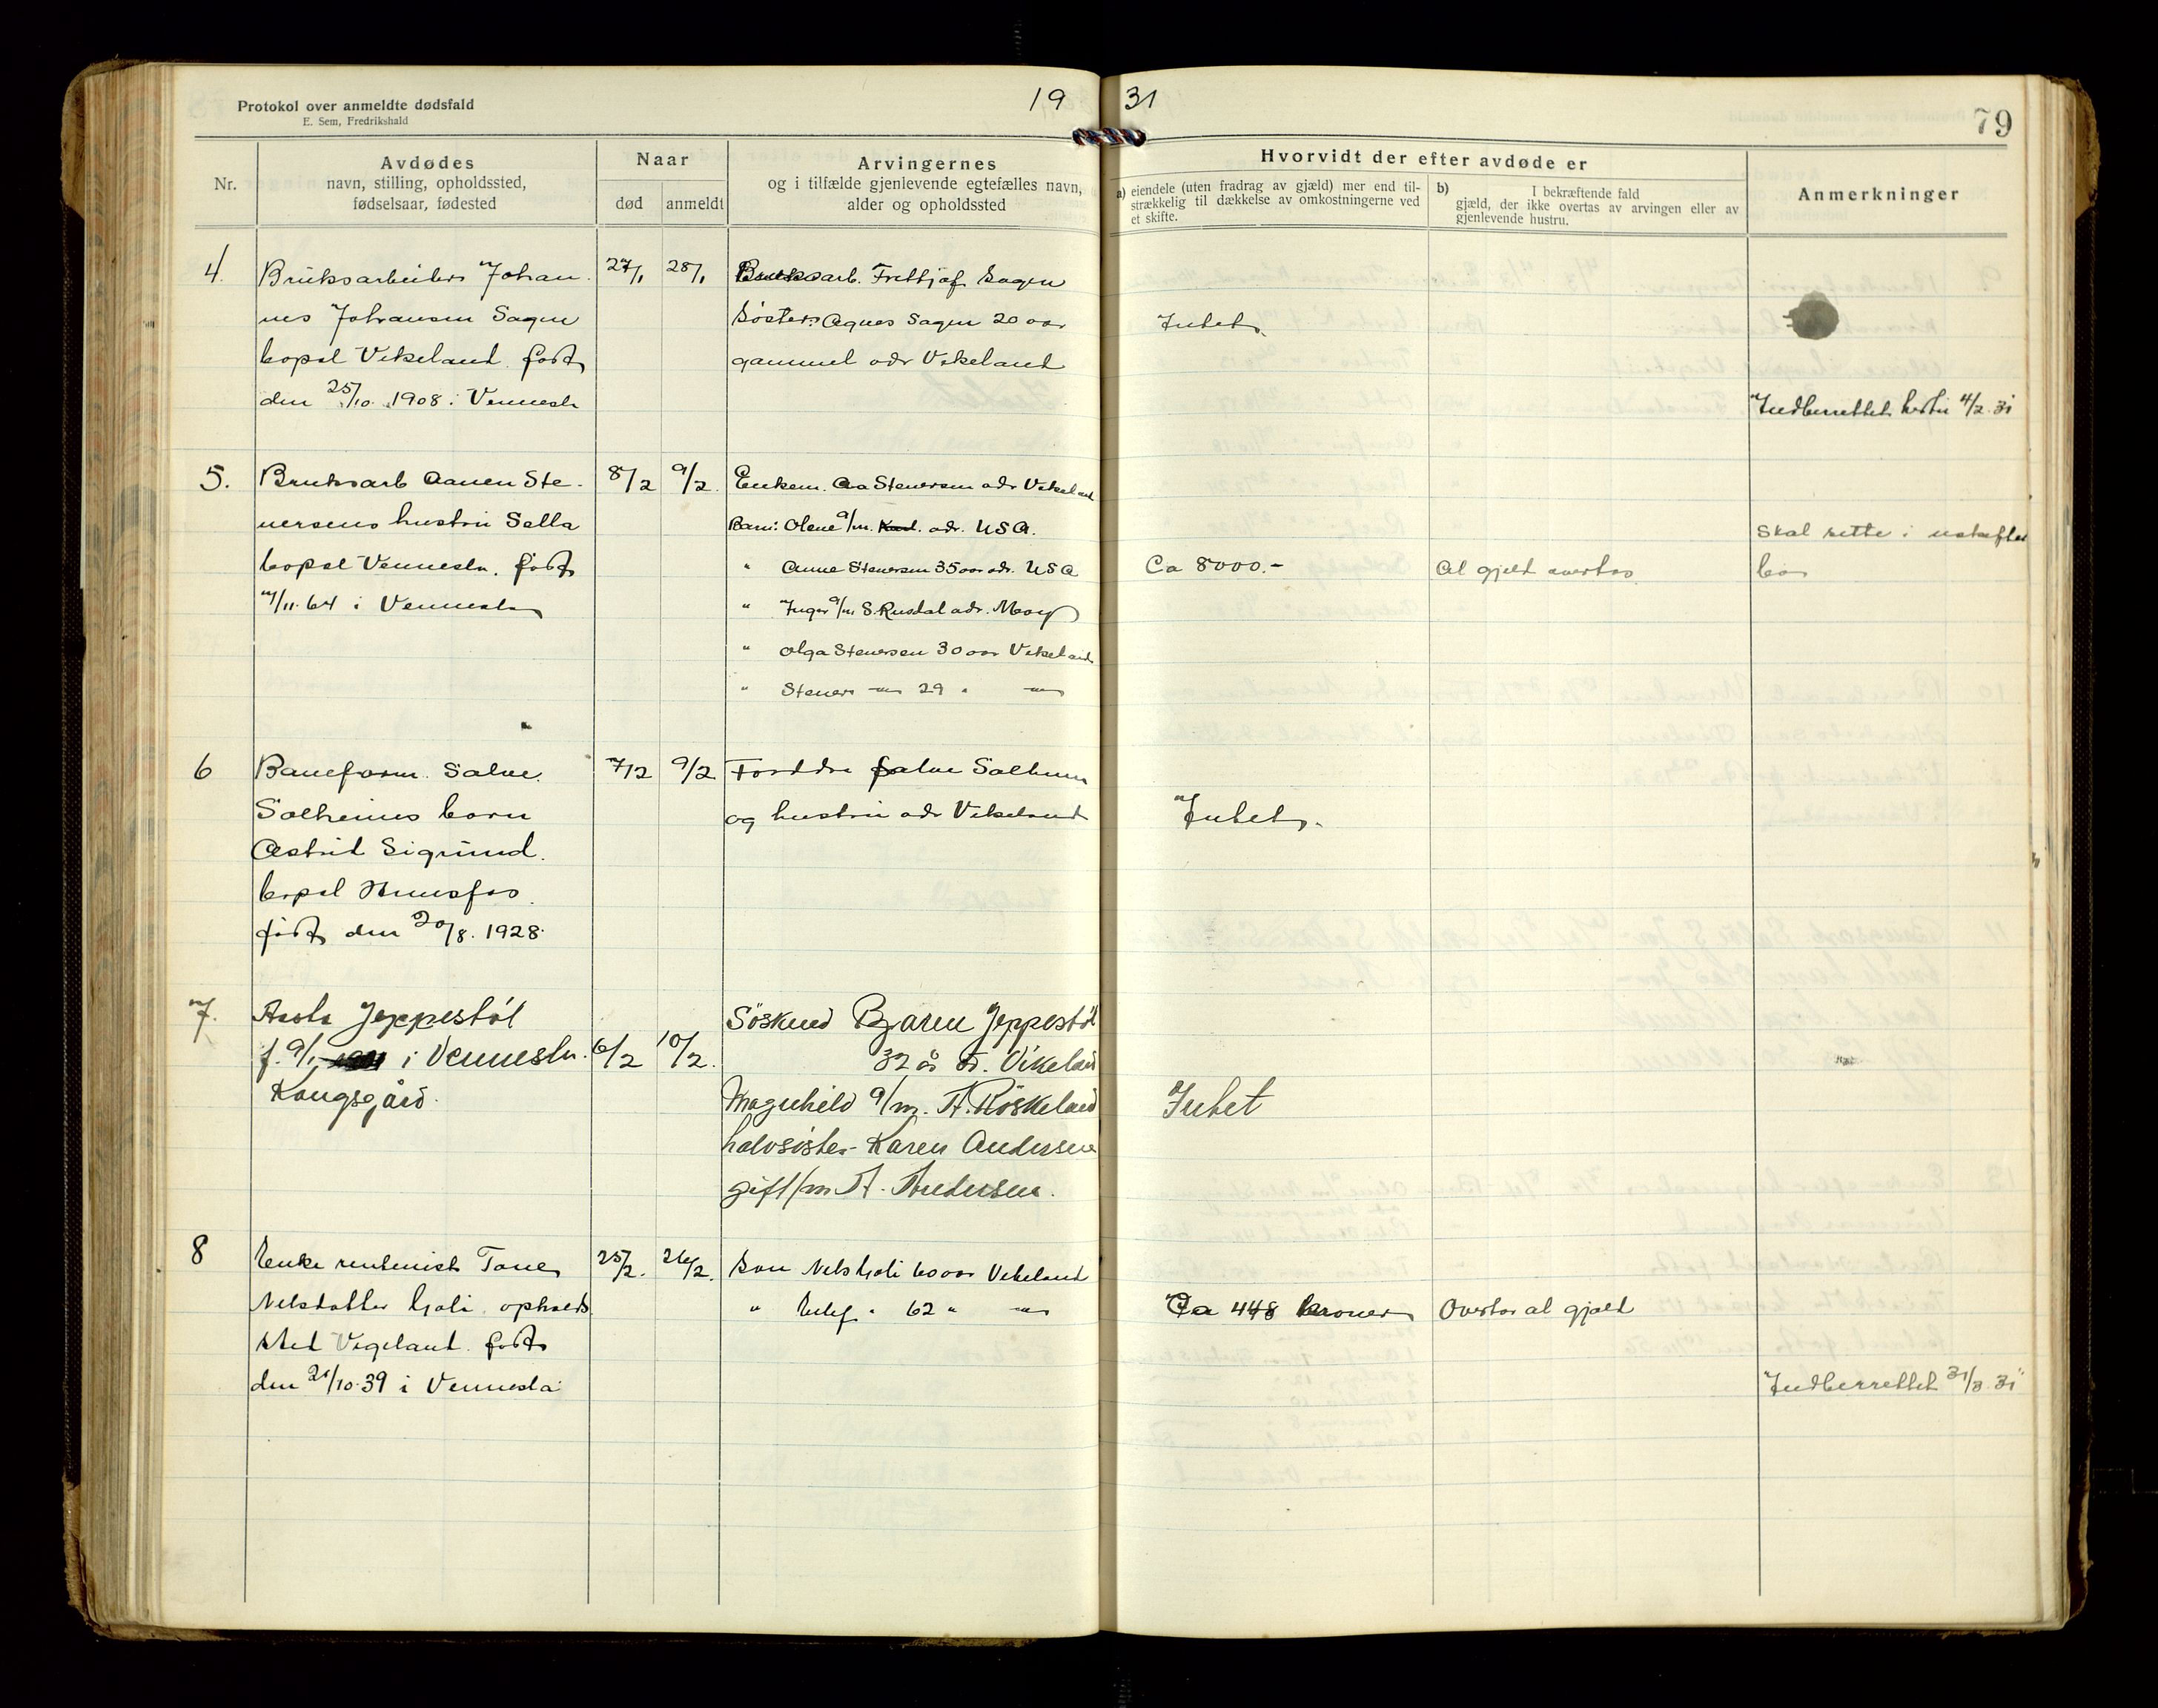 Protokol over anmeldte dødsfald
E. Sem, Fredrikshald
19 31
79
Nr.
Avdødes
navn, stilling, opholdssted,
fødselsaar, fødested
Naar
død
anmeldt
Arvingernes
og i tilfælde gjenlevende egtefælles navn,
alder og opholdssted
Hvorvidt der efter avdøde er
a) eiendele (uten fradrag av gjæld) mer end til-
strækkelig til dækkelse av omkostningerne ved
et skifte.
b) I bekræftende fald
gjæld, der ikke overtas av arvingen eller av
gjenlevende hustru.
Anmerkninger
4.
Bruksarbeider Johan
nes Johansen Sagen
bopel Vikeland. født
den 25/10. 1908 i Vennesla
27/1
28/1
Bruksarb. Frithjof Sagen
Søster: Agnes Sagen 20 aar
gammel adr Vikeland
Intet.
Indberrettet 4/2. 31
5.
Bruksarb Aanen Ste-
nersens hustru Salla
bopel Vennesla. født
7/11. 64 i Vennesla
8/2
9/2.
Enkem. Aa Stenersen adr Vikeland
Barn: Olene g/m. adr. USA.
" Anne Stenersen 35 aar adr. USA
" Inger g/m S. Rusdal adr. Mosy
" Olga Stenersen 30 aar Vikeland
" Stener — 29 " —
Ca 8000.-
Al gjeld overtas.
Skal sitte i uskiftet
bo
6
Baneform. Salve
Solheims barn
Astrid Sigrund.
bopel Hunsfos.
født den 20/8. 1928.
7/2
9/2
Foreldre Salve Solheim
og hustru adr Vikeland
Intet.
7.
Aasta Jeppestøl
f. 9/1 i Vennesla.
Kongsgård.
6/2
10/2.
Söskend Bjarne Jeppestøl
32 år adr. Vikeland
Magnhild g/m. A. Röskeland
halvsöster - Karen Andersen
gift/m A. Andersen.
Intet
8
Enke Tone
Nelsdatter Hali. opholds
sted Vigeland. født
den 21/10. 39 i Vennesla
25/2.
26/2.
Søn Nels Hali 60 aar Vikeland
" " 62 " —
Ca 448 kroner
Overtar al gjæld
Indberrettet 31/3. 31